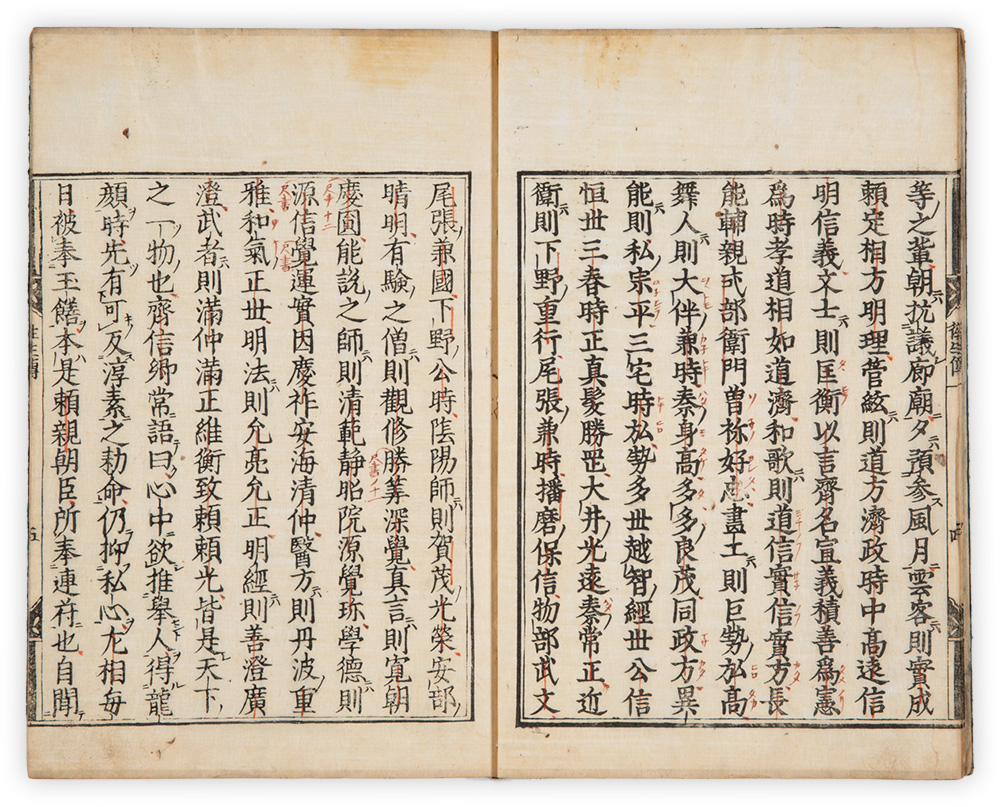 等之輩朝抗議廊廟夕預参風月雲客則實成
頼定相方明理菅絃則道方濟政時中髙遠信
明信義文士則匡衡以言齊名宣義積善為憲
為時孝道相如道濟和歌則道信實信實方長
能輔親式部衛門曽祢好忠畫工則巨勢弘髙
舞人則大伴兼時秦身髙多多良茂同政方異
能則私宗平三宅時弘勢多丗越智經丗公信
恒丗三春時正真髮勝罡大井光遠秦常正近
衛則下野重行尾張兼時播磨保信物部武文
尾張兼國下野公時陰陽師則賀茂光榮安部
晴明有驗之僧則觀修勝筭深覺真言則寛朝
慶圓能説之師則清範静昭院源覺珎學德則
源信覺運實因慶祚安海清仲醫方則丹波重
雅和氣正丗明法則允亮允正明經則善澄廣
澄武者則滿仲滿正維衡致頼頼光皆是天下
之一物也齊信卿常語曰心中欲推舉人得龍
顔時先有可反淳素之勅命仍抑私心尤相每
日被奉玉饍本是頼親朝臣所奉連苻也自聞
五